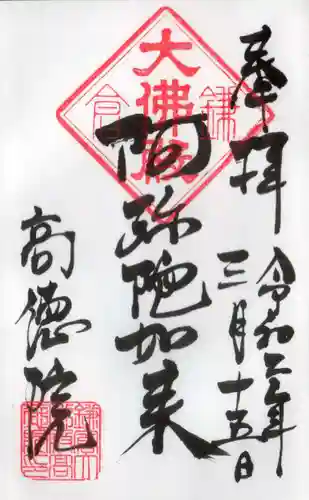 奉拝
令和二年
三月十五日
大佛殿
鎌倉
阿弥陀如来
高徳院